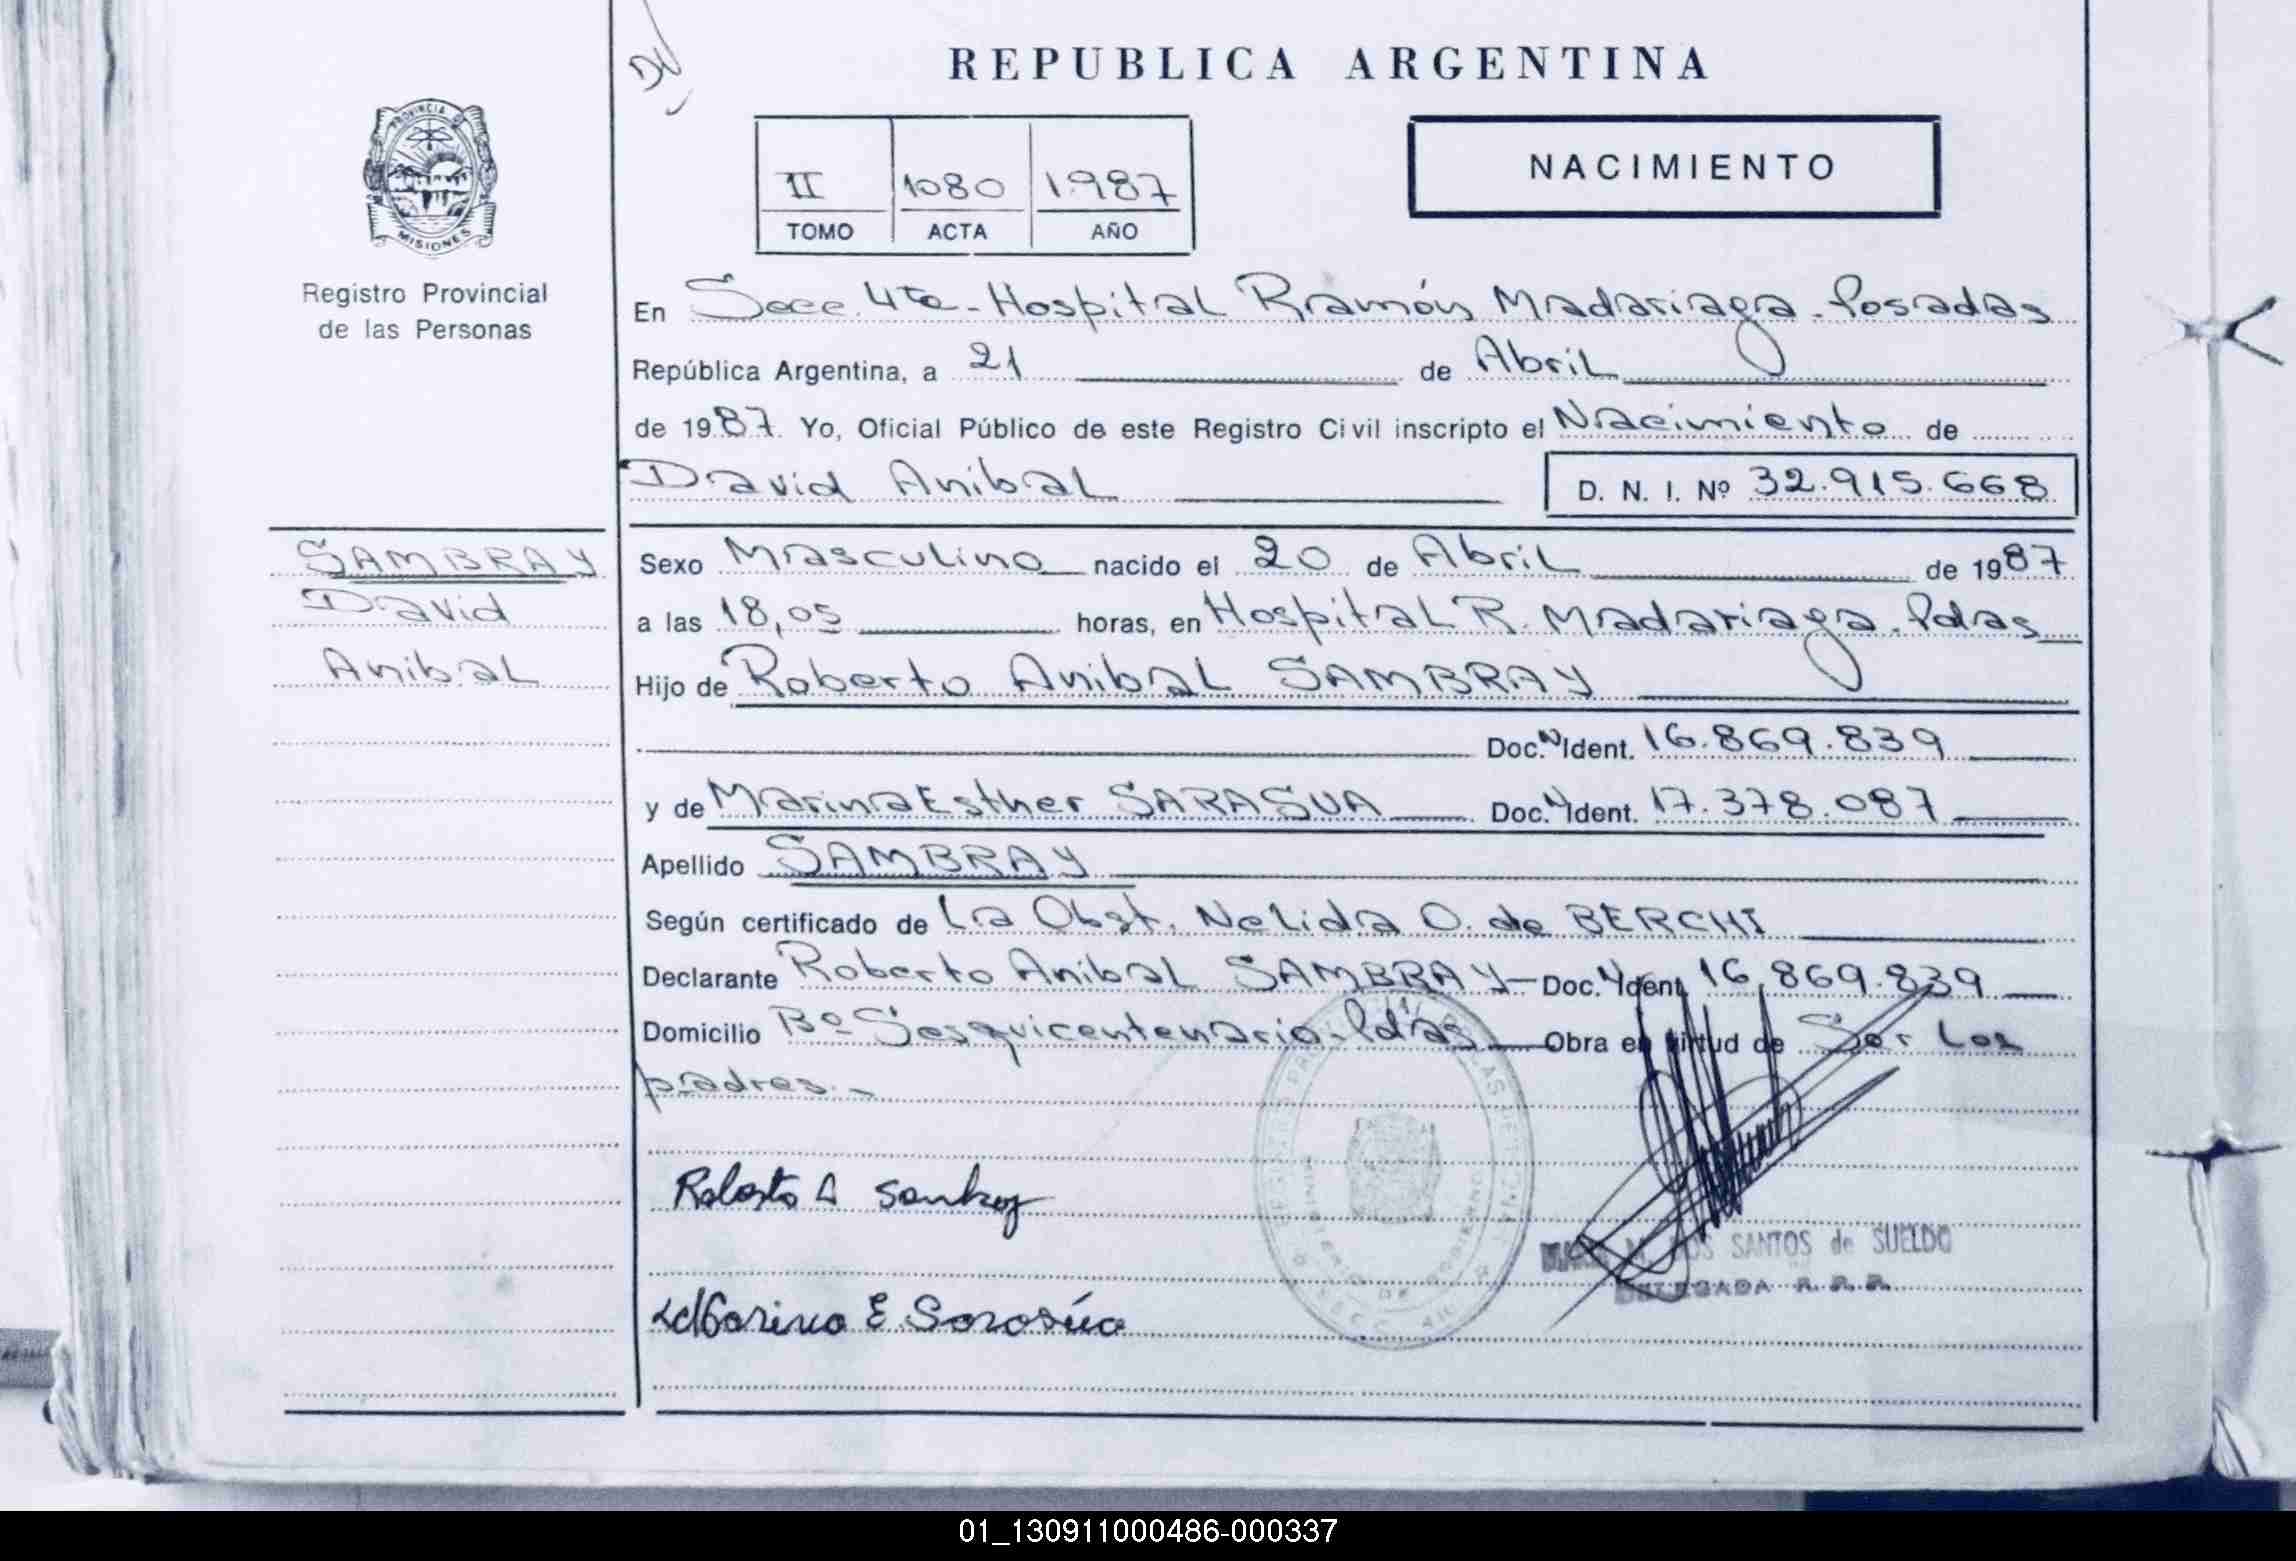 DV
REPUBLICA ARGENTINA
PROVINCIA DE
MISIONES
Registro Provincial
de las Personas
II 1080 1.987
TOMO ACTA AÑO
NACIMIENTO
En Secc. 4ta - Hospital Ramón Madariaga - Posadas
República Argentina, a 21 de Abril
de 1987. Yo, Oficial Público de este Registro Civil inscripto el Nacimiento de
David Anibal D. N. I. Nº 32.915.668
SAMBRAY
David
Anibal
Sexo Masculino nacido el 20 de Abril de 1987
a las 18,05 horas, en Hospital R. Madariaga - Pdas
Hijo de Roberto Anibal SAMBRAY
Doc. N Ident. 16.869.839
y de Marina Esther SARASUA Doc. N Ident. 17.378.087
Apellido SAMBRAY
Según certificado de La Obst. Nelida O. de BERCHI
Declarante Roberto Anibal SAMBRAY - Doc. N Ident. 16.869.839
Domicilio Bº Sesquicentenario - Pdas Obra en virtud de Ser Los
padres. -
Roberto A Sambray
Marina E Sarasúa
M. DOS SANTOS de SUELDO
DELEGADA R. P. P.
01_130911000486-000337